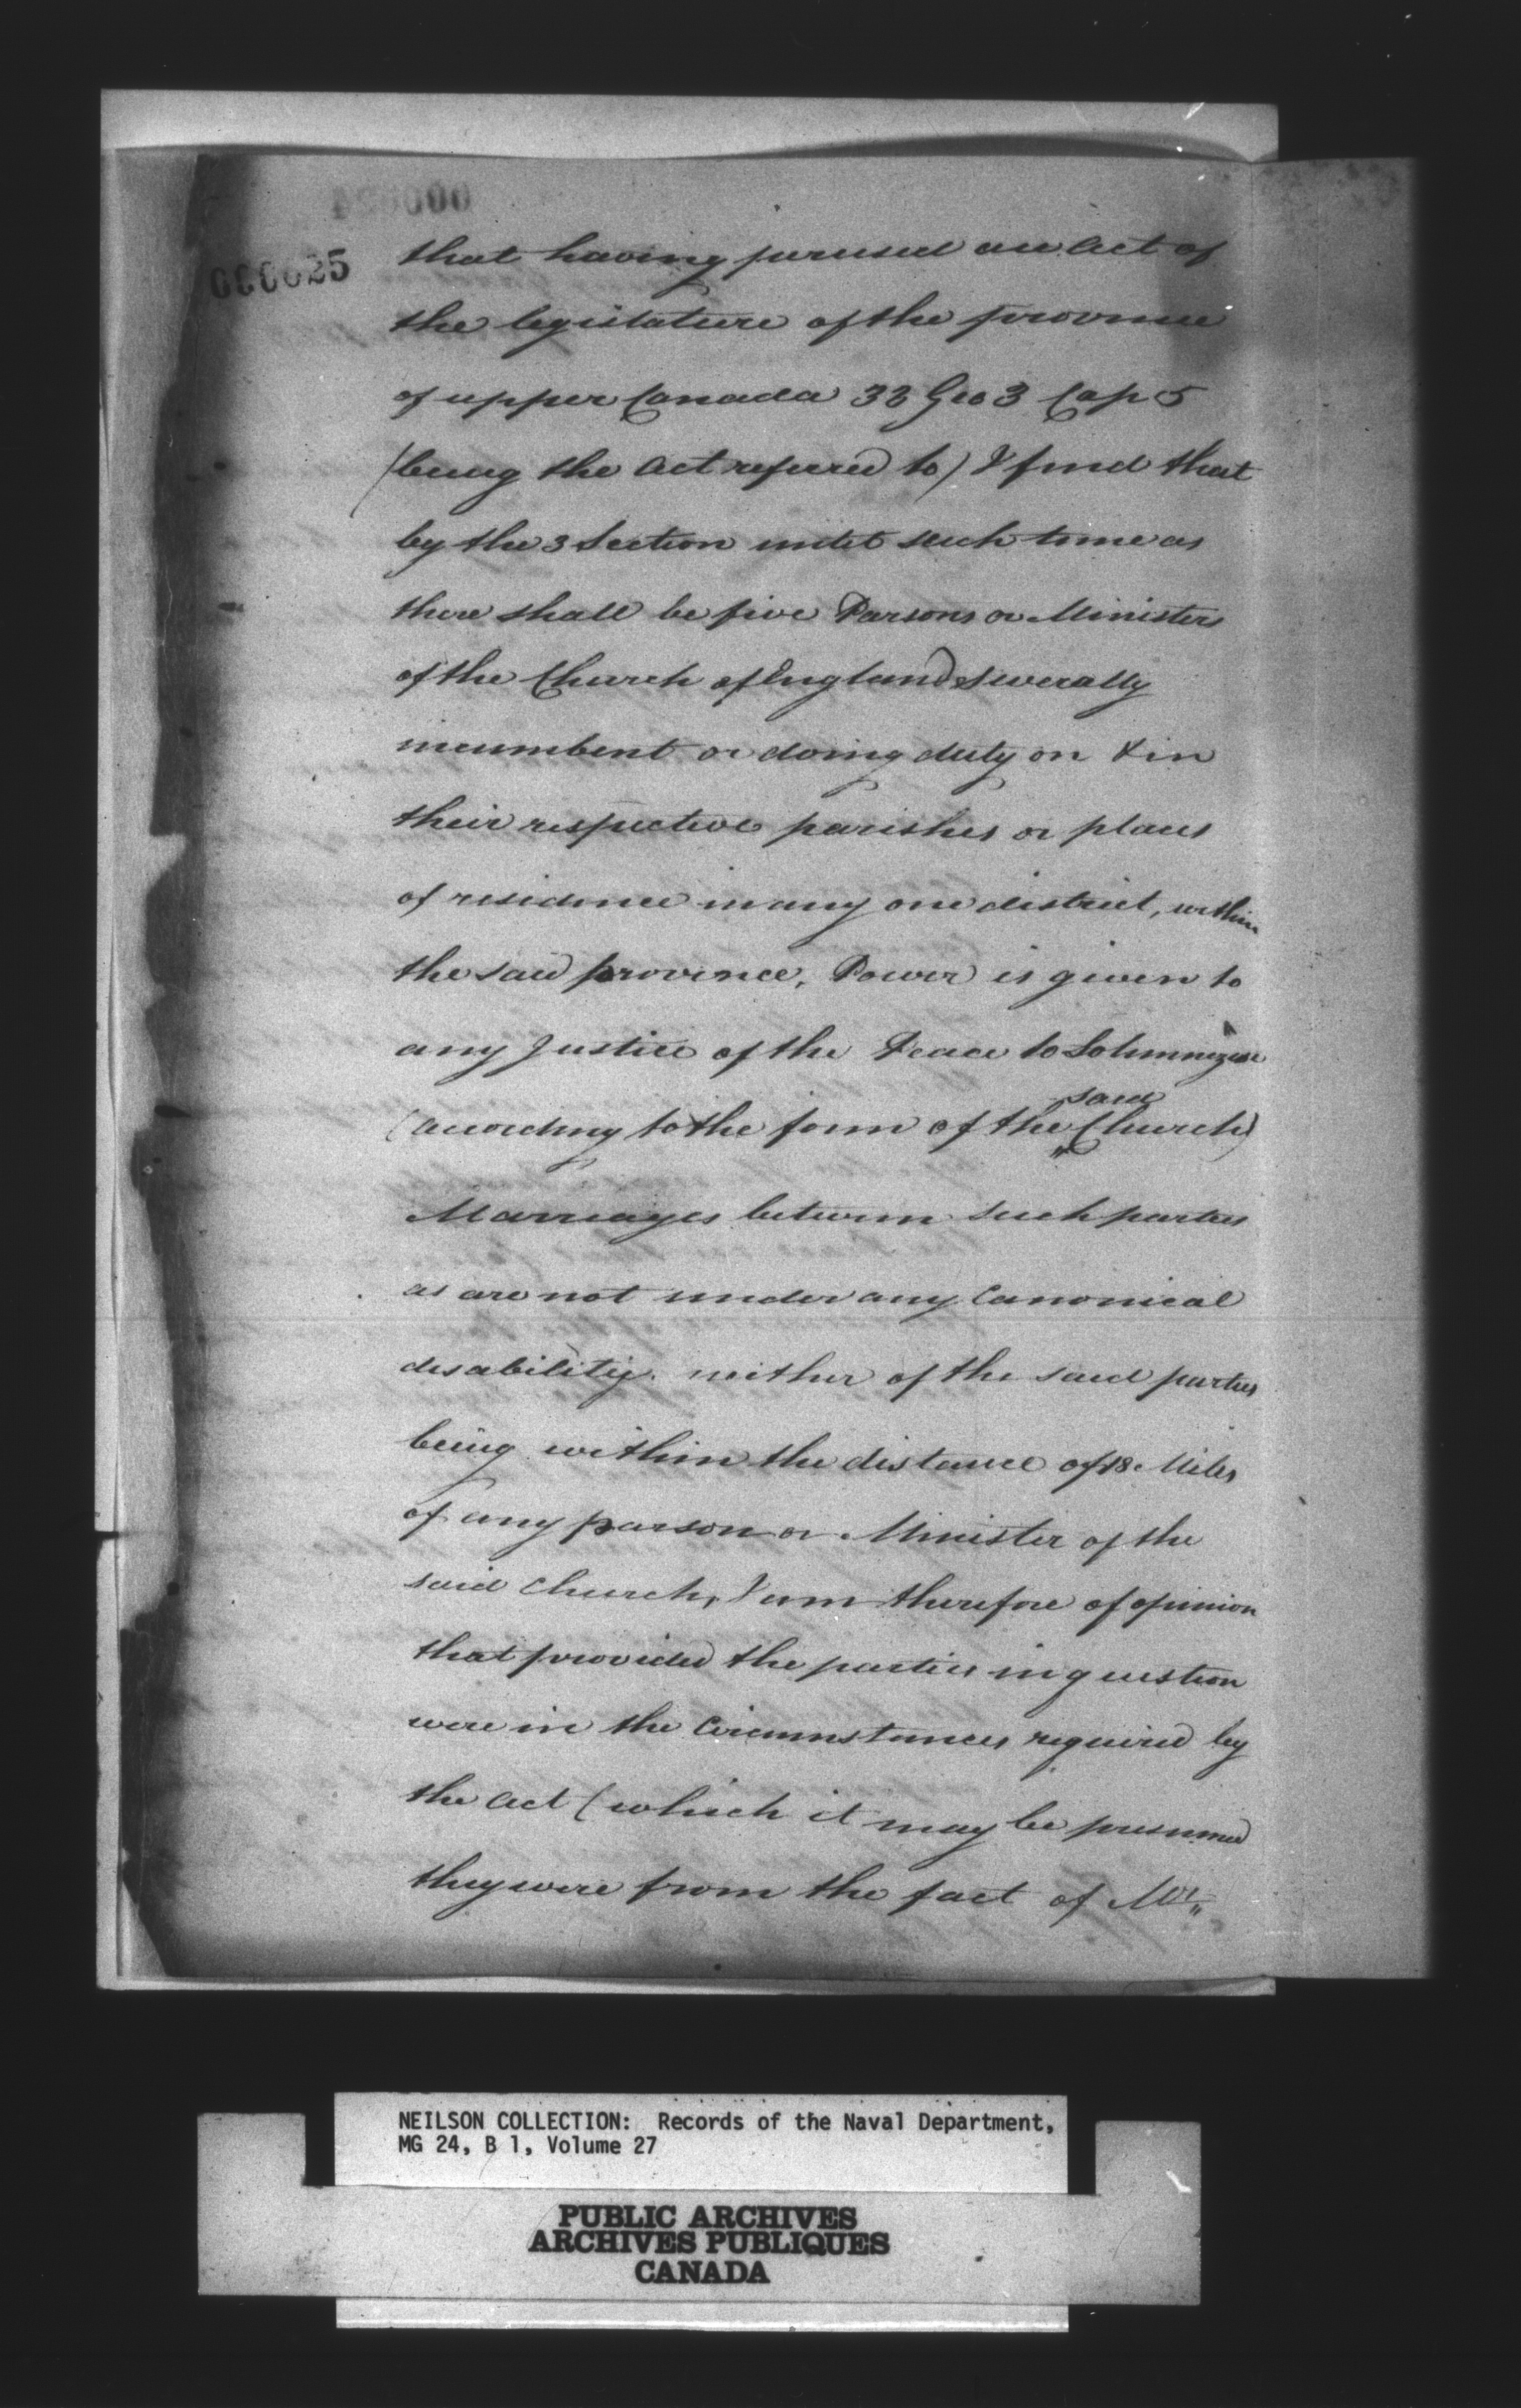 000025
that having perused an Act of
the legislature of the province
of upper Canada 33 Geo 3 Cap 5
(being the Act referred to) I find that
by the 3 Section until such time as
there shall be five Parsons or Ministers
of the Church of England severally
incumbent or doing duty on & in
their respective parishes or places
of residence in any one district, within
the said province, Power is given to
any Justice of the Peace to Solemnize
(according to the form of the said Church)
Marriages between such parties
as are not under any Canonical
disability. neither of the said parties
being within the distance of 18 Miles
of any parson or Minister of the
said Church, I am therefore of opinion
that provided the parties in question
were in the Circumstances required by
the Act (which it may be presumed
they were from the fact of Mr
NEILSON COLLECTION: Records of the Naval Department,
MG 24, B 1, Volume 27
PUBLIC ARCHIVES
ARCHIVES PUBLIQUES
CANADA